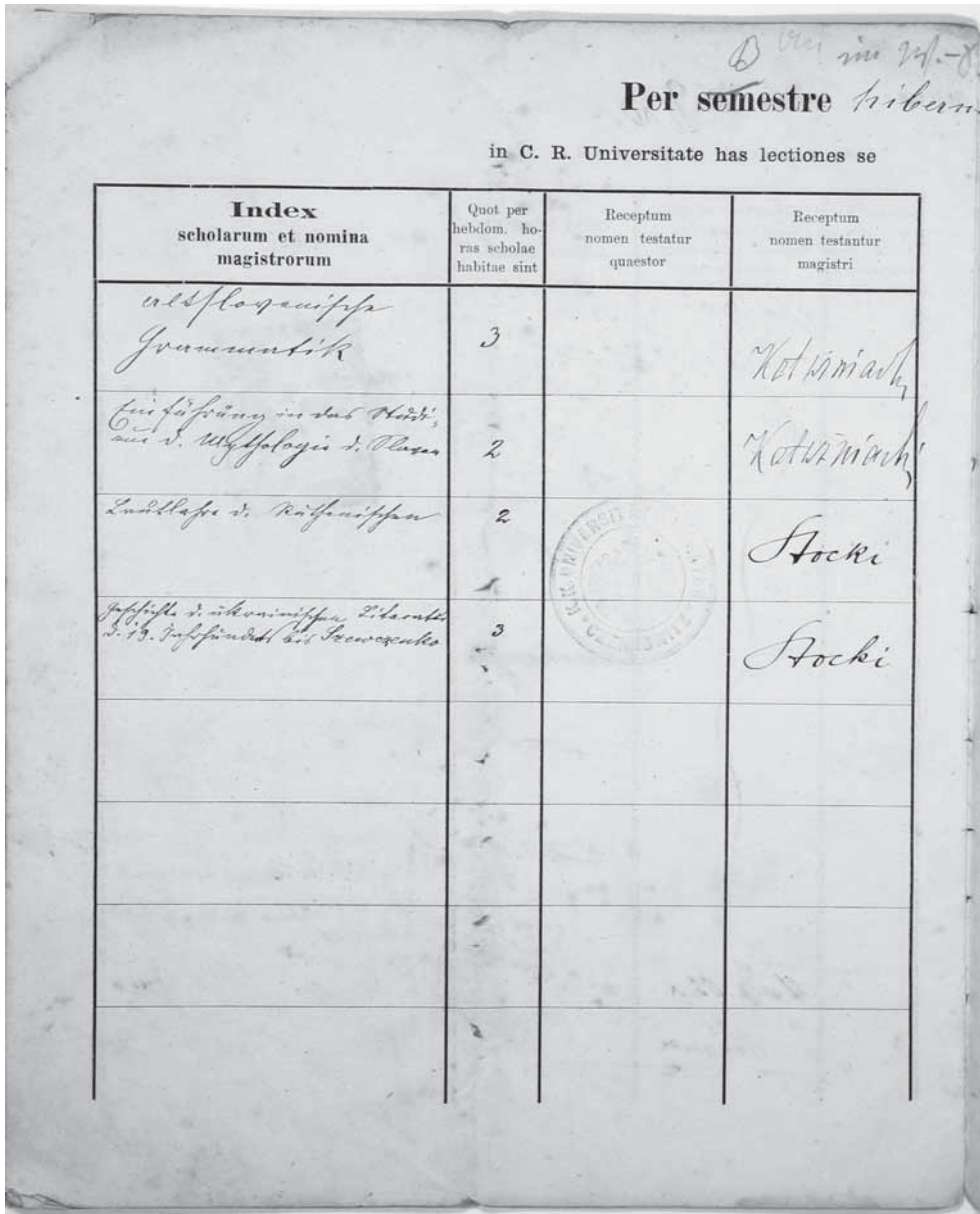 im
Per semestre hibern.
in C. R. Universitate has lectiones se
Index
scholarum et nomina
magistrorum
Quot per
hebdom. ho-
ras scholae
habitae sint
Receptum
nomen testatur
quaestor
Receptum
nomen testantur
magistri
Altslovenische
Grammatik
3
Kałužniacki
Einführung in das Studi-
um d. Mythologie d. Slaven
2
Kałužniacki
Lautlehre d. Ruthenischen
2
Stocki
K.K. UNIVERSIT
CZERNOWITZ
Geschichte d. ukrainischen Literatur
d. 19. Jahrhunderts bis Szewczenko
3
Stocki